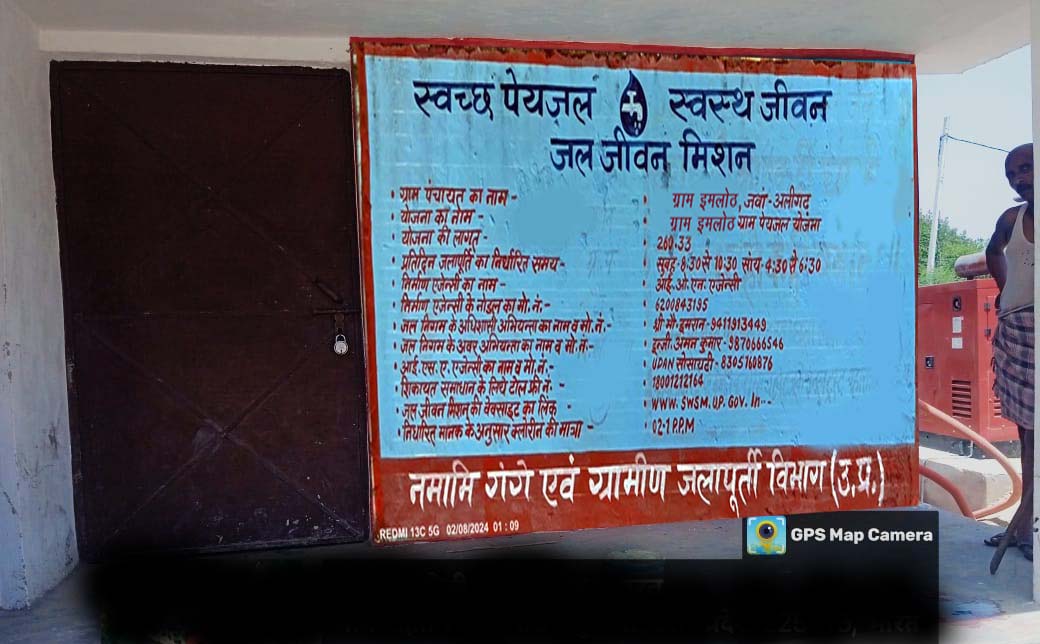 स्वच्छ पेयजल स्वस्थ जीवन
जल जीवन मिशन
• ग्राम पंचायत का नाम - • ग्राम इमलोठ, जवां - अलीगढ़
• योजना का नाम - • ग्राम इमलोठ ग्राम पेयजल योजना
• योजना की लागत - • .33
• प्रतिदिन जलापूर्ति का निर्धारित समय - • सुबह - 8:30 से 10:30 सांय - 4:30 से 6:30
• निर्माण एजेन्सी का नाम - • आई.ओ.एन. एजेन्सी
• निर्माण एजेन्सी के नोडल का मो. नं. - • 6200843195
• जल निगम के अधिशासी अभियन्ता का नाम व मो. नं. - • श्री मौ. इमरान - 9411913449
• जल निगम के अवर अभियन्ता का नाम व मो. नं. - • इन्जी. अमन कुमार - 9870666546
• आई.एस.ए. एजेन्सी का नाम व मो. नं. - • UDAN सोसायटी - 8305160876
• शिकायत समाधान के लिये टोल फ्री नं. - • 18001212164
• जल जीवन मिशन की वेबसाइट का लिंक - • WWW.SWSM.UP.GOV.In--
• निर्धारित मानक के अनुसार क्लोरीन की मात्रा - • 02-1 P.P.M
नमामि गंगे एवं ग्रामीण जलापूर्ती विभाग (उ.प्र.)
REDMI 13C 5G 02/08/2024 01:09
GPS Map Camera